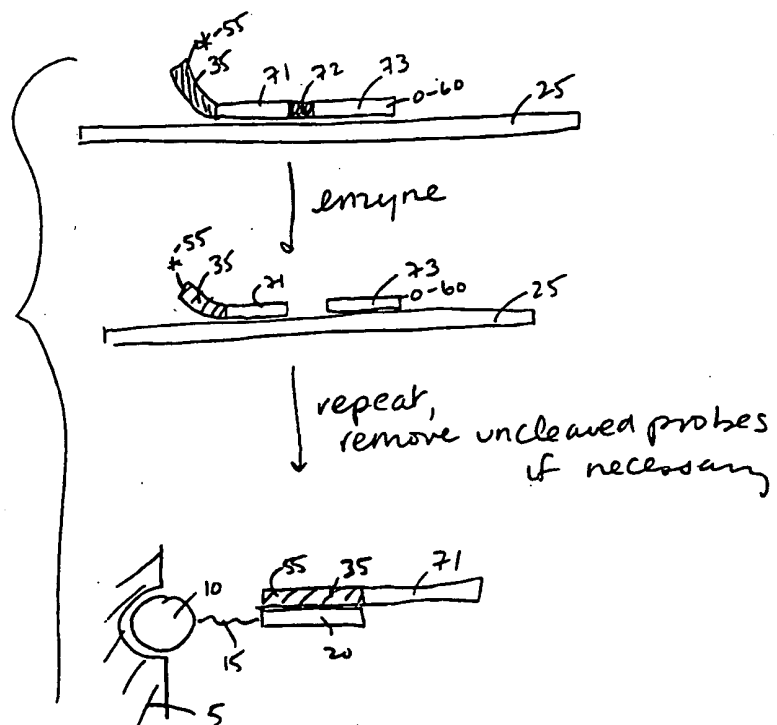 *-55
35
71 72 73
0-60
25
enzyme
*-55
35
71
73
0-60
25
repeat,
remove uncleaved probes
if necessary
55 35 71
10
15
20
5